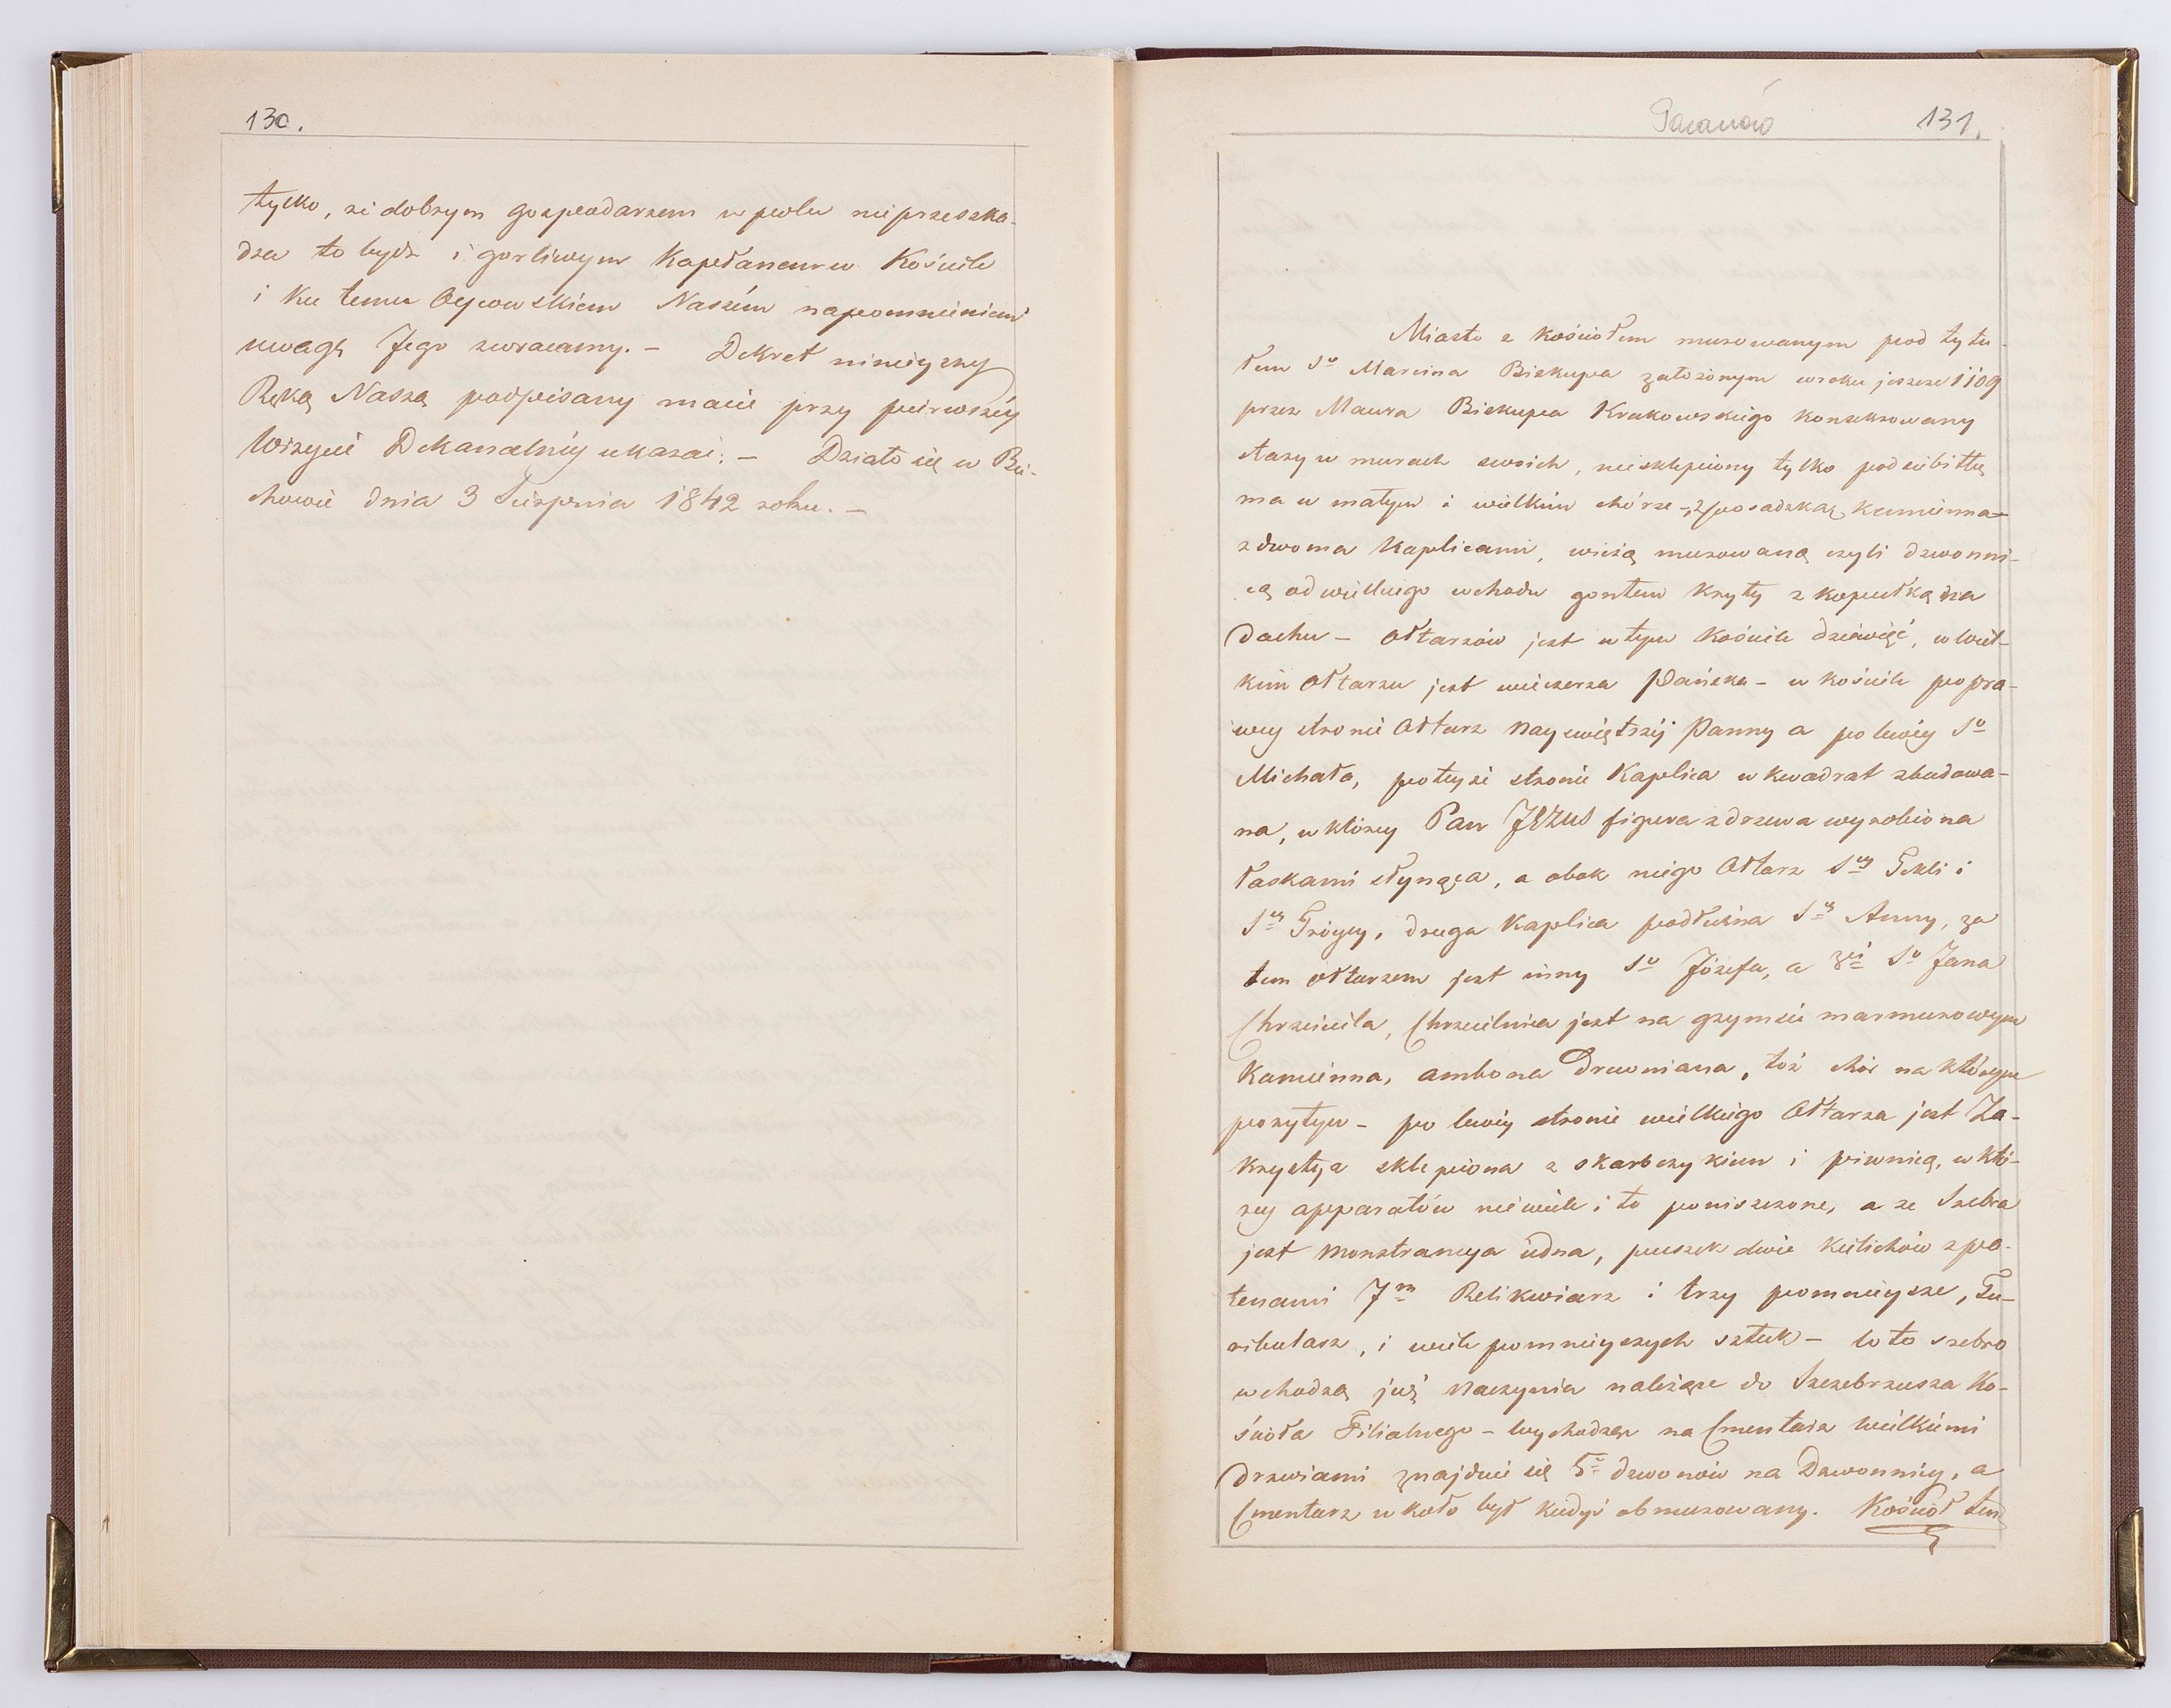 130.
tylko, że dobrym gospodarzem w polu nieprzeszka-
dza to bydź i gorliwym Kapłanem w Kościele
i ku temu Oycowskiem Naszém napomnieniem
uwagę Jego zwracamy. — Dekret ninieyszy
Ręką Naszą podpisany macie przy pierwszéy
Wizycie Dekanalnéy ukazać. — Działo się w Bie-
chowie dnia 3 Sierpnia 1842 roku. —
Pacanów 131.
Miasto z kościołem murowanym pod tytu-
łem Sº Marcina Biskupa założonym w roku jeszcze 1109
przez Maura Biskupa Krakowskiego konsekrowany
stary w murach swoich, niesklepiony tylko podsiębitkę
ma w małym i wielkim chórze — z posadzką kamienną
z dwoma Kaplicami, wieżą murowaną czyli dzwonni-
cą od wielkiego wchodu gontem kryty z kopułką na
dachu — Ołtarzów jest w tym Kościele dziewięć, w Wiel-
kim Ołtarzu jest wieczerza Pańska — w kościele po pra-
wey stronie Ołtarz Nayświętszéj Panny a po lewéy Sº
Michała, po tejże stronie Kaplica w kwadrat zbudowa-
na, w którey Pan JEZUS figura z drzewa wyrobiona
łaskami słynąca, a obok niego Ołtarz Sey Tekli i
Sey Tróycy, druga Kaplica podłużna Sey Anny, za
tem ołtarzem jest inny Sº Józefa, a 3ci Sº Jana
Chrzciciela, Chrzcielnica jest na gzymsie marmurowym
Kamienna, ambona Drewniana, toż chór na którym
pozytyw — po lewéy stronie wielkiego Ołtarza jest Za-
krystya sklepiona z skarbczykiem i piwnicą, w któ-
rey apparatów niewiele i to poniszczone, a ze Srebra
jest Monstrancya iedna, puszek dwie Kielichów z pa-
tenami 7m Relikwiarz i trzy pomnieysze, Tu-
ribularz, i wiele pomnieyszych sztuk — w to srebro
wchodzą już Naczynia należące do Szczebrzusza Ko-
ścioła Filialnego — wychodząc na Cmentarz Wielkiemi
drzwiami znajduie się 5ć dzwonów na Dzwonnicy, a
Cmentarz w koło był kiedyś obmurowany. Kościół ten